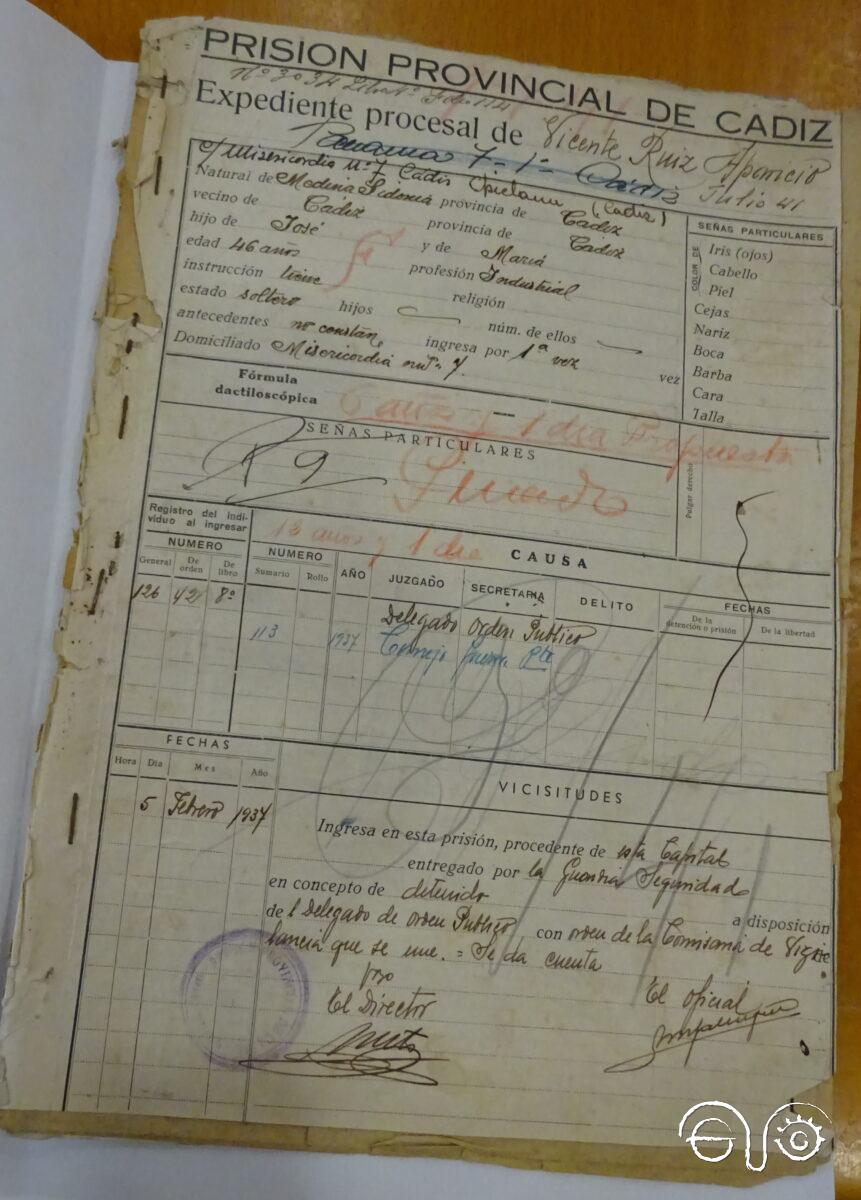 PRISION PROVINCIAL DE CADIZ
Nº 3034
Expediente procesal de Vicente Ruiz Aparicio
7-1º Cádiz Julio 41
c/ Misericordia nº 7 Cádiz (Cadiz)
Natural de Medina Sidonia provincia de Cadiz
vecino de Cádiz provincia de Cadiz
hijo de José y de María
edad 46 años profesión Industrial
instrucción tiene religión
estado soltero hijos núm. de ellos
antecedentes no constan ingresa por 1ª vez vez
Domiciliado Misericordia núº 7.
SEÑAS PARTICULARES
COLOR DE
Iris (ojos)
Cabello
Piel
Cejas
Nariz
Boca
Barba
Cara
Talla
Fórmula dactiloscópica
años y 1 dia Propuesta
SEÑAS PARTICULARES
Pulgar derecho
R 9
Registro del individuo al ingresar
NUMERO
General De orden De libro
126 42 8º
12 años y 1 dia
CAUSA
NUMERO AÑO JUZGADO SECRETARIA DELITO FECHAS
Sumario Rollo De la detención o prisión De la libertad
Delegado Orden Publico
113 1937 Consejo Guerra Pte
FECHAS
Hora Dia Mes Año
VICISITUDES
5 Febrero 1937
Ingresa en esta prisión, procedente de esta Capital
entregado por la Guardia Seguridad
en concepto de detenido a disposición
del Delegado de orden Publico con orden de la Comisaria de Vigi
lancia que se une. = Se da cuenta
El Director El oficial